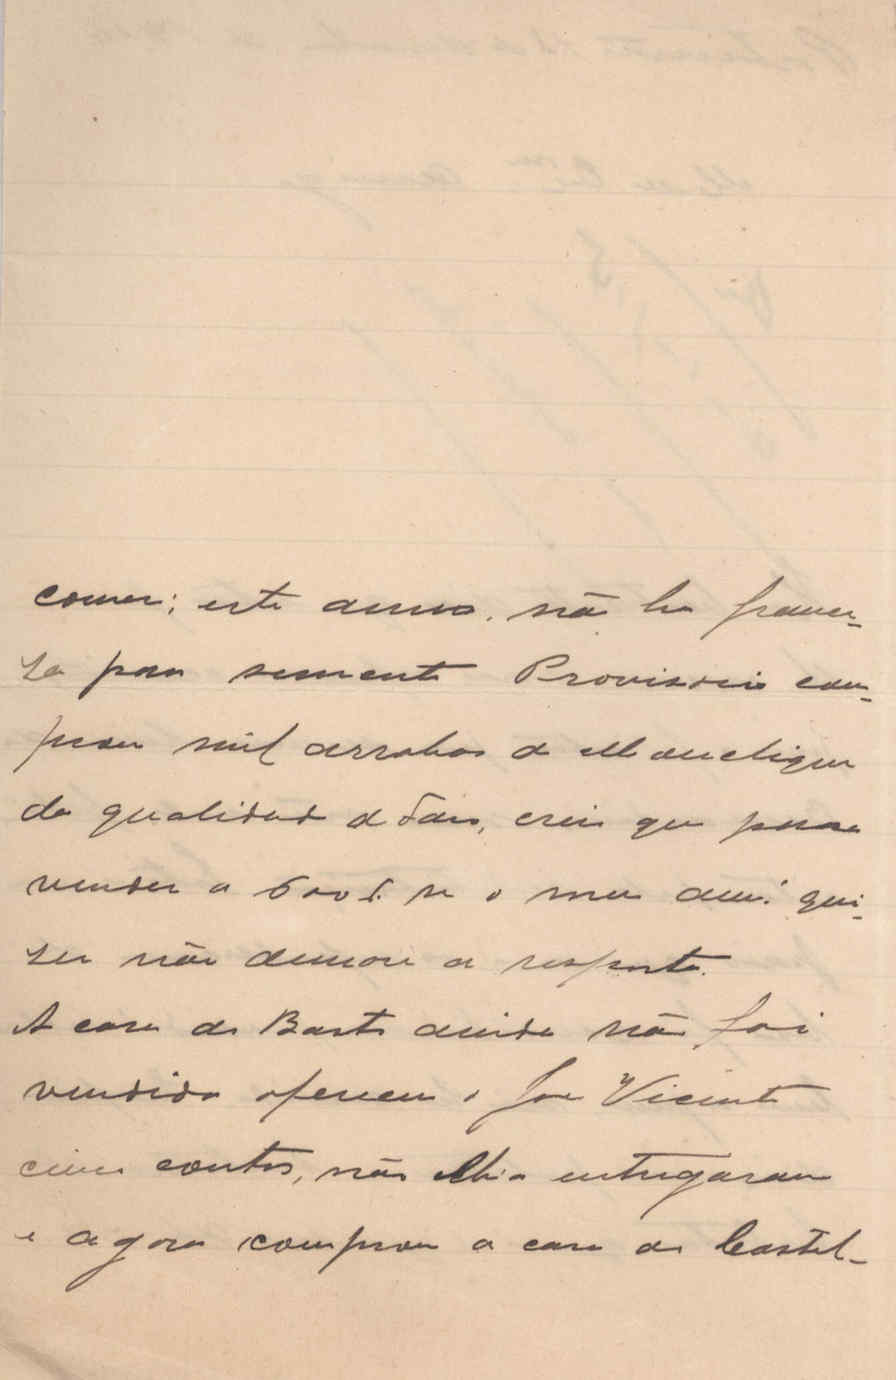 comer; este anno, não ha france-
za para semente Provisorio com-
prou mil arrobas de Monchique
da qualidade do Dão, creio que possa
vender a 600 r. se o meu am.º qui-
ser não demore a resposta.
A casa do Basto ainda não foi
vendida offereceu o José Vicente
cinco contos, não lh'a entregaram
e agora comprou a casa do Castel-